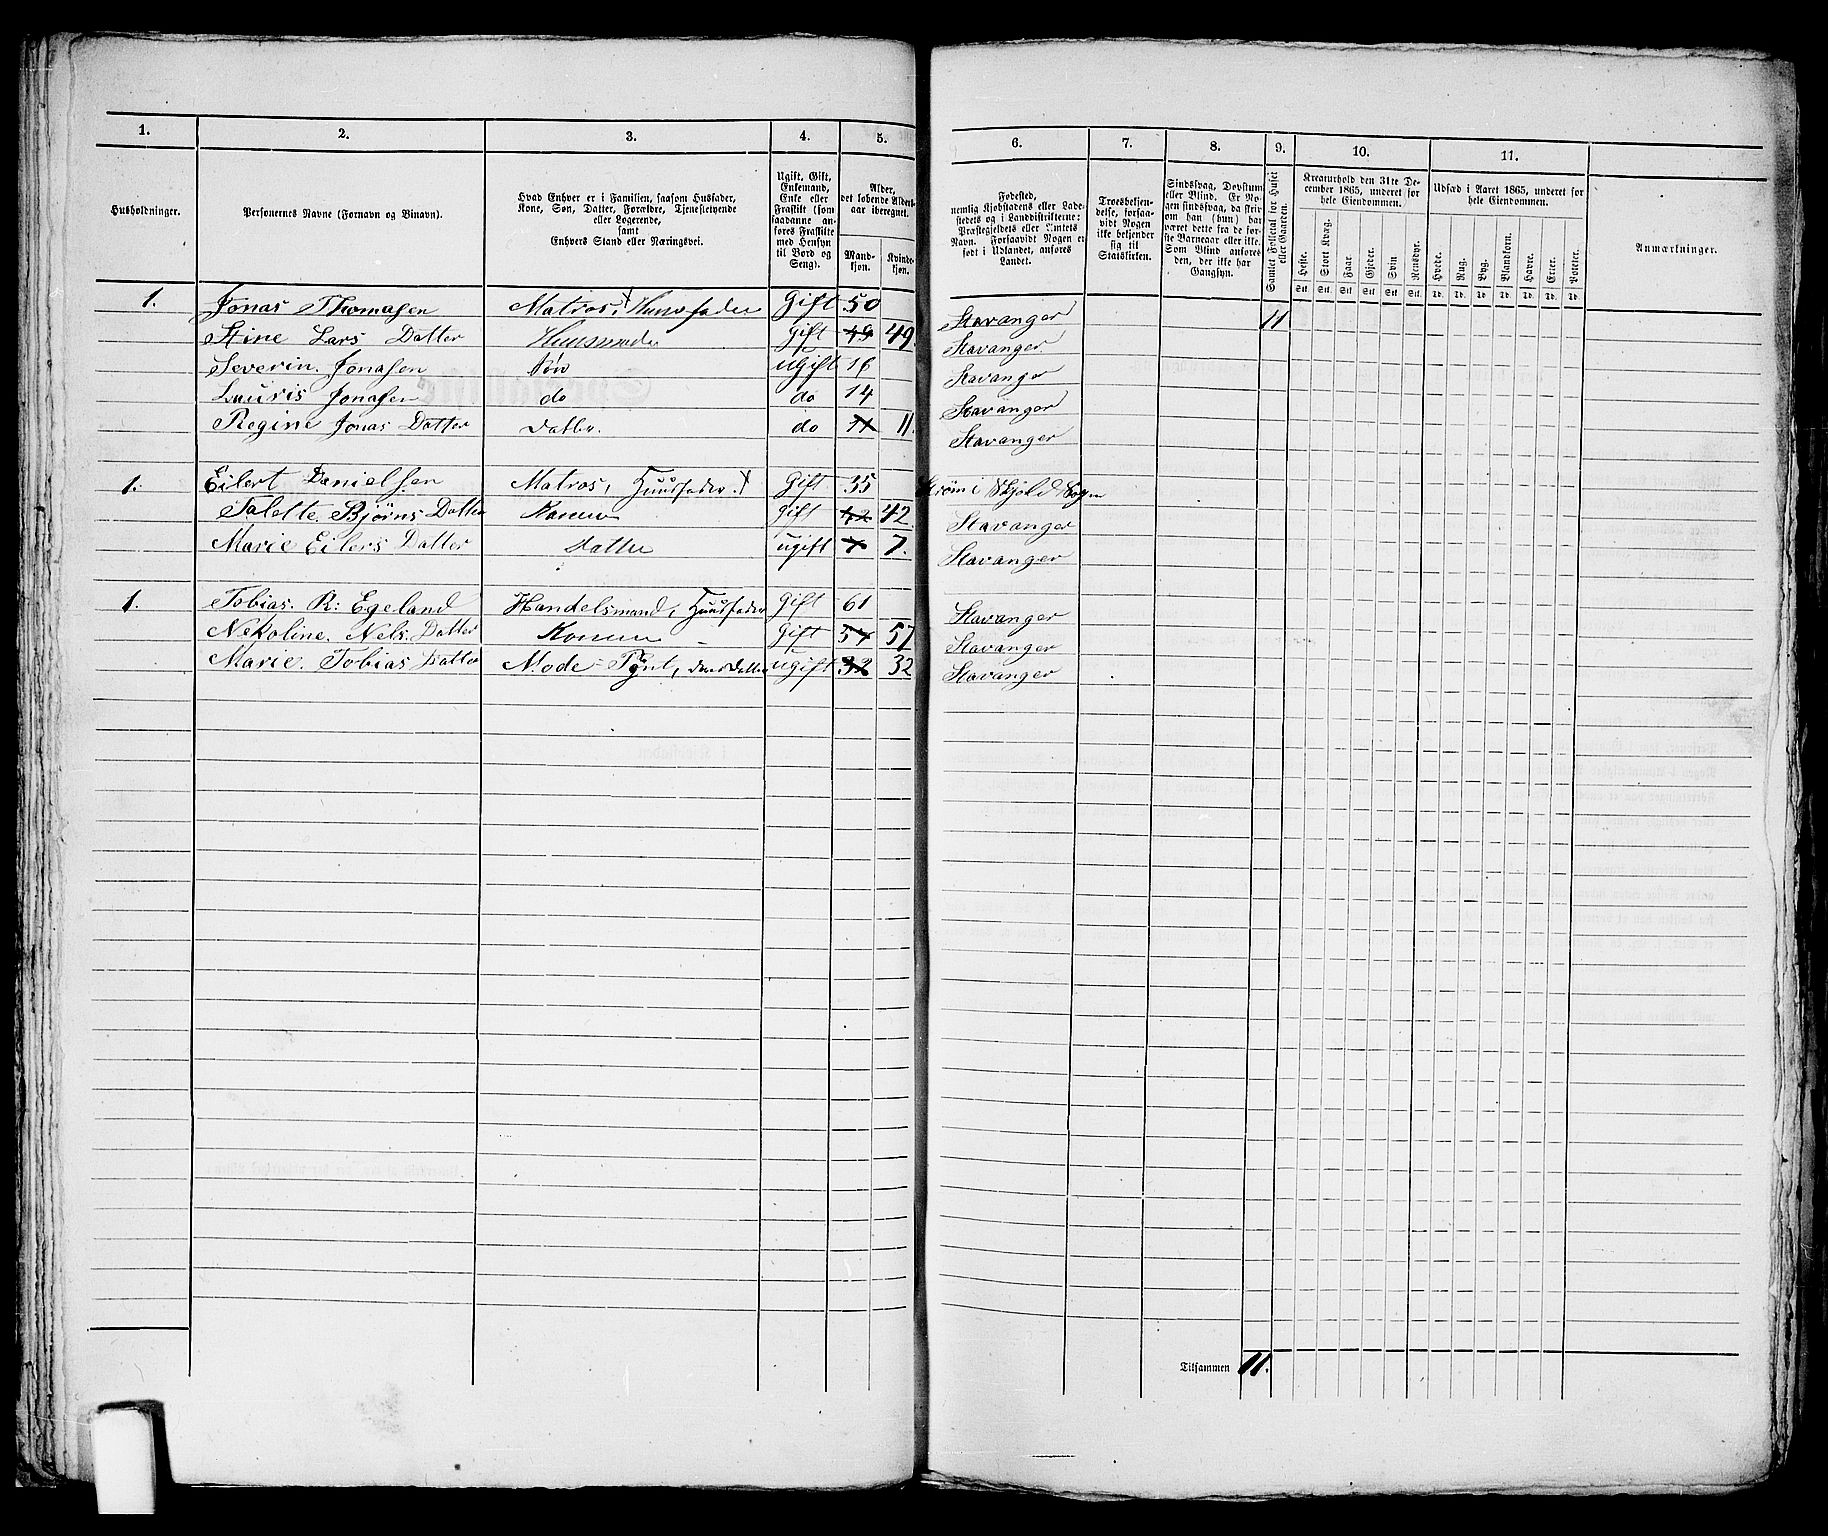 1. 2. 3. 4. 5. 6. 7. 8. 9. 10. 11.
Husholdninger.
Personernes Navne (Fornavn og Binavn).
Hvad Enhver er i Familien, saasom Husfader,
Kone, Søn, Datter, Forældre, Tjenestetyende
eller Logerende,
samt
Enhvers Stand eller Næringsvei.
Ugift, Gift,
Enkemand,
Enke eller
Fraskilt (som
saadanne an-
føres Fraskilte
med Hensyn
til Bord og
Seng).
Alder,
det løbende Alders-
aar iberegnet.
Mand-
kjøn.
Kvinde-
kjøn.
Fødested,
nemlig Kjøbstadens eller Lade-
stedets og i Landdistrikterne:
Præstegjeldets eller Sognets
Navn. Forsaavidt Nogen er
født i Udlandet, anføres
Landet.
Troesbekjen-
delse, forsaa-
vidt Nogen
ikke bekjender
sig til
Statskirken.
Sindssvag, Døvstum
eller Blind. Er No-
gen sindssvag, da skriv
om han (hun) har
været dette fra de før-
ste Barneaar eller ikke.
Som Blind anføres
den, der ikke har
Gangsyn.
Samlet Folketal for Huset
eller Gaarden.
Kreaturhold den 31te De-
cember 1865, underet for
hele Eiendommen.
Heste. Stort Kvæg. Faar. Gjeder. Svin. Rensdyr.
Stk. Stk. Stk. Stk. Stk. Stk.
Udsæd i Aaret 1865, underet for
hele Eiendommen.
Hvede. Rug. Byg. Blandkorn. Havre. Erter. Poteter.
Td. Td. Td. Td. Td. Td. Td.
Anmærkninger.
1. Jonas Thomasen Matros, Huusfader Gift 50 Stavanger 11
Stine Lars Datter Huusmoder Gift 49 49. Stavanger
Severin. Jonasen Søn Ugift 16 Stavanger
Lauris Jonasen do do 14 Stavanger
Regine Jonas Datter Datter. do 11 11. Stavanger
1. Eilert Danielsen Matros, Huusfader. Gift 35 Strøm i Skjold Sogn
Talette. Bjørns Datter Konen Gift 42 42. Stavanger
Marie Eilers Datter Datter ugift 7 7. Stavanger
1. Tobias. R: Egeland Handelsmand, Huusfader Gift 61 Stavanger
Nekoline. Nels. Datter Konen Gift 57 57 Stavanger
Marie. Tobias Datter Mode-Pynt, Datter ugift 32 32 Stavanger
Tilsammen 11.